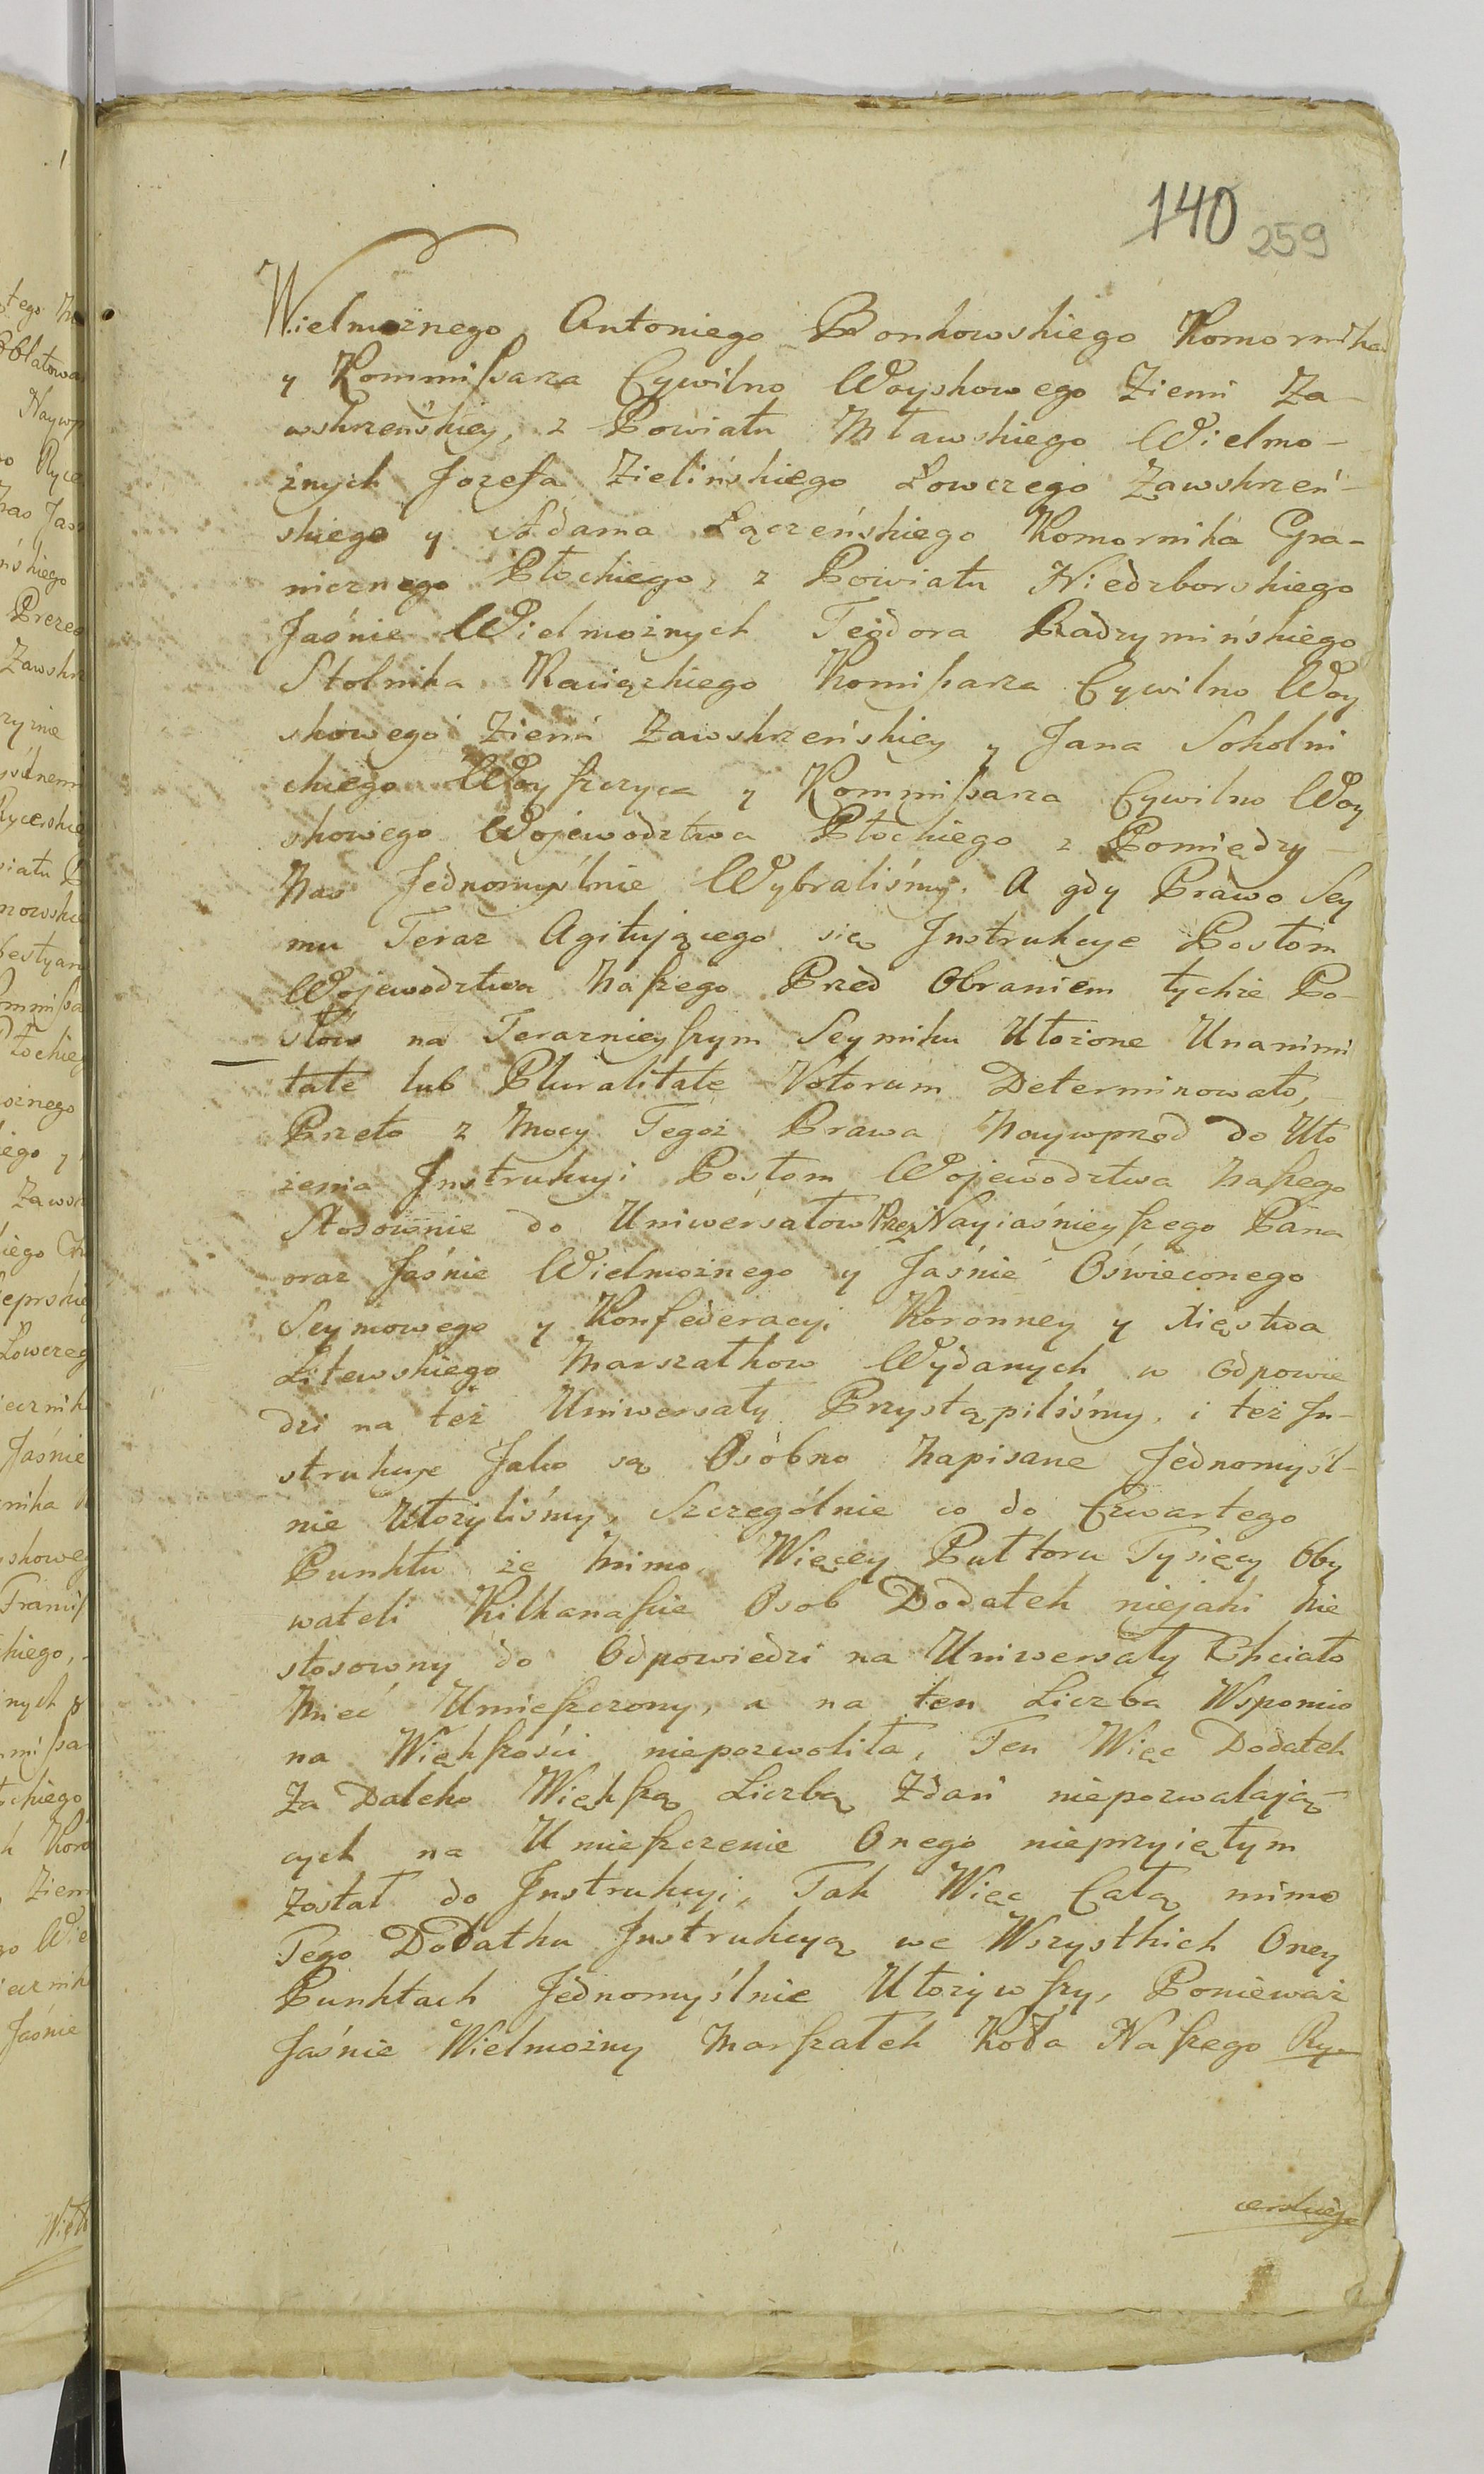 140 259
Wielmożnego Antoniego Bonkowskiego Komornika
y Kommißarza Cywilno Woyskowego Ziemi Za-
wskrzeńskiey, z Powiatu Mławskiego Wielmo-
żnych Jozefa Zielińskiego Łowczego Zawskrzeń-
skiego y Adama Łączeńskiego Komornika Gra-
nicznego Płockiego, z Powiatu Niedzborskiego
Jaśnie Wielmożnych Teodora Radzymińskiego
Stolnika Raciązkiego Komißarza Cywilno Woy
skowego Ziemi Zawskrzeńskiey y Jana Sokolni
ckiego Woyszczyca y Kommißarza Cywilno Woy
skowego Wojewodztwa Płockiego z Pomiędzy
Nas Jednomyślnie Wybraliśmy. A gdy Prawo Sey
mu Teraz Agitującego się Instrukcye Posłom
Wojewodztwa Naszego Przed Obraniem tychże Po-
słow na Teraznieyszym Seymiku Ułożone Unanimi
tate lub Pluralitate Votorum Determinowało,
Przeto z Mocy Tegoż Prawa Naywprzod do Uło
żenia Instrukcyi Posłom Wojewodztwa Naszego
Stosownie do Uniwersałow Przez Nayiaśnieyszego Pana
oraz Jaśnie Wielmożnego y Jaśnie Oświeconego
Seymowego y Konfederacyi Koronney y Xięstwa
Litewskiego Marszałkow Wydanych w Odpowie
dzi na też Uniwersały Przystąpiliśmy, i też In-
strukcye Jako są Osóbno Napisane Jednomyśl-
nie Ułożyliśmy, Szczególnie co do Czwartego
Punktu że Mimo Więcey Pułtoru Tysięcy Oby
wateli Kilkanaście Osob Dodatek niejaki Nie
stosowny do Odpowiedzi na Uniwersały Chciało
Mieć Umieszczony, a na ten Liczba Wspomio
na Większości niepozwoliła, Ten Więc Dodatek
Za Daleko Większą Liczbą Zdań niepozwalają-
cych na Umieszczenie Onego nieprzyiętym
został do Instrukcyi, Tak Więc Całą mimo
Tego Dodatku Instrukcyą we Wszystkich Oney
Punktach Jednomyślnie Ułożywszy, Ponieważ
Jaśnie Wielmożny Marszałek Koła Naszego Ry-
cerskiego